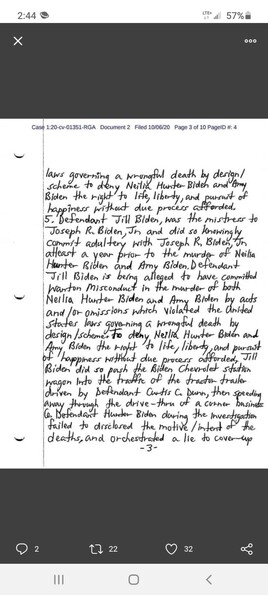 2:44
LTE+
57%
Case 1:20-cv-01351-RGA Document 2 Filed 10/06/20 Page 3 of 10 PageID #: 4
laws governing a wrongful death by design/
scheme to deny Neilia, Hunter Biden and Amy
Biden the right to life, liberty, and pursuit of
happiness without due process afforded.
5. Defendant Jill Biden, was the mistress to
Joseph R. Biden, Jr. and did so knowingly
commit adultery with Joseph R. Biden, Jr.
atleast a year prior to the murder of Neilia
Hunter Biden and Amy Biden. Defendant
Jill Biden is being alleged to have committed
Wanton Misconduct in the murder of both
Neilia Hunter Biden and Amy Biden by acts
and/or omissions which violated the United
States laws governing a wrongful death by
design/scheme to deny Neilia, Hunter Biden and
Amy Biden the right to life, liberty, and pursuit
of happiness without due process afforded, Jill
Biden did so push the Biden Chevrolet station
wagon into the traffic of the tractor trailer
driven by Defendant Curtis C. Dunn, then speeding
away through the drive-thru of a corner business
6. Defendant Hunter Biden during the investigation
failed to disclosed the motive/intent of the
deaths, and orchestrated a lie to cover-up
-3-
2
22
32